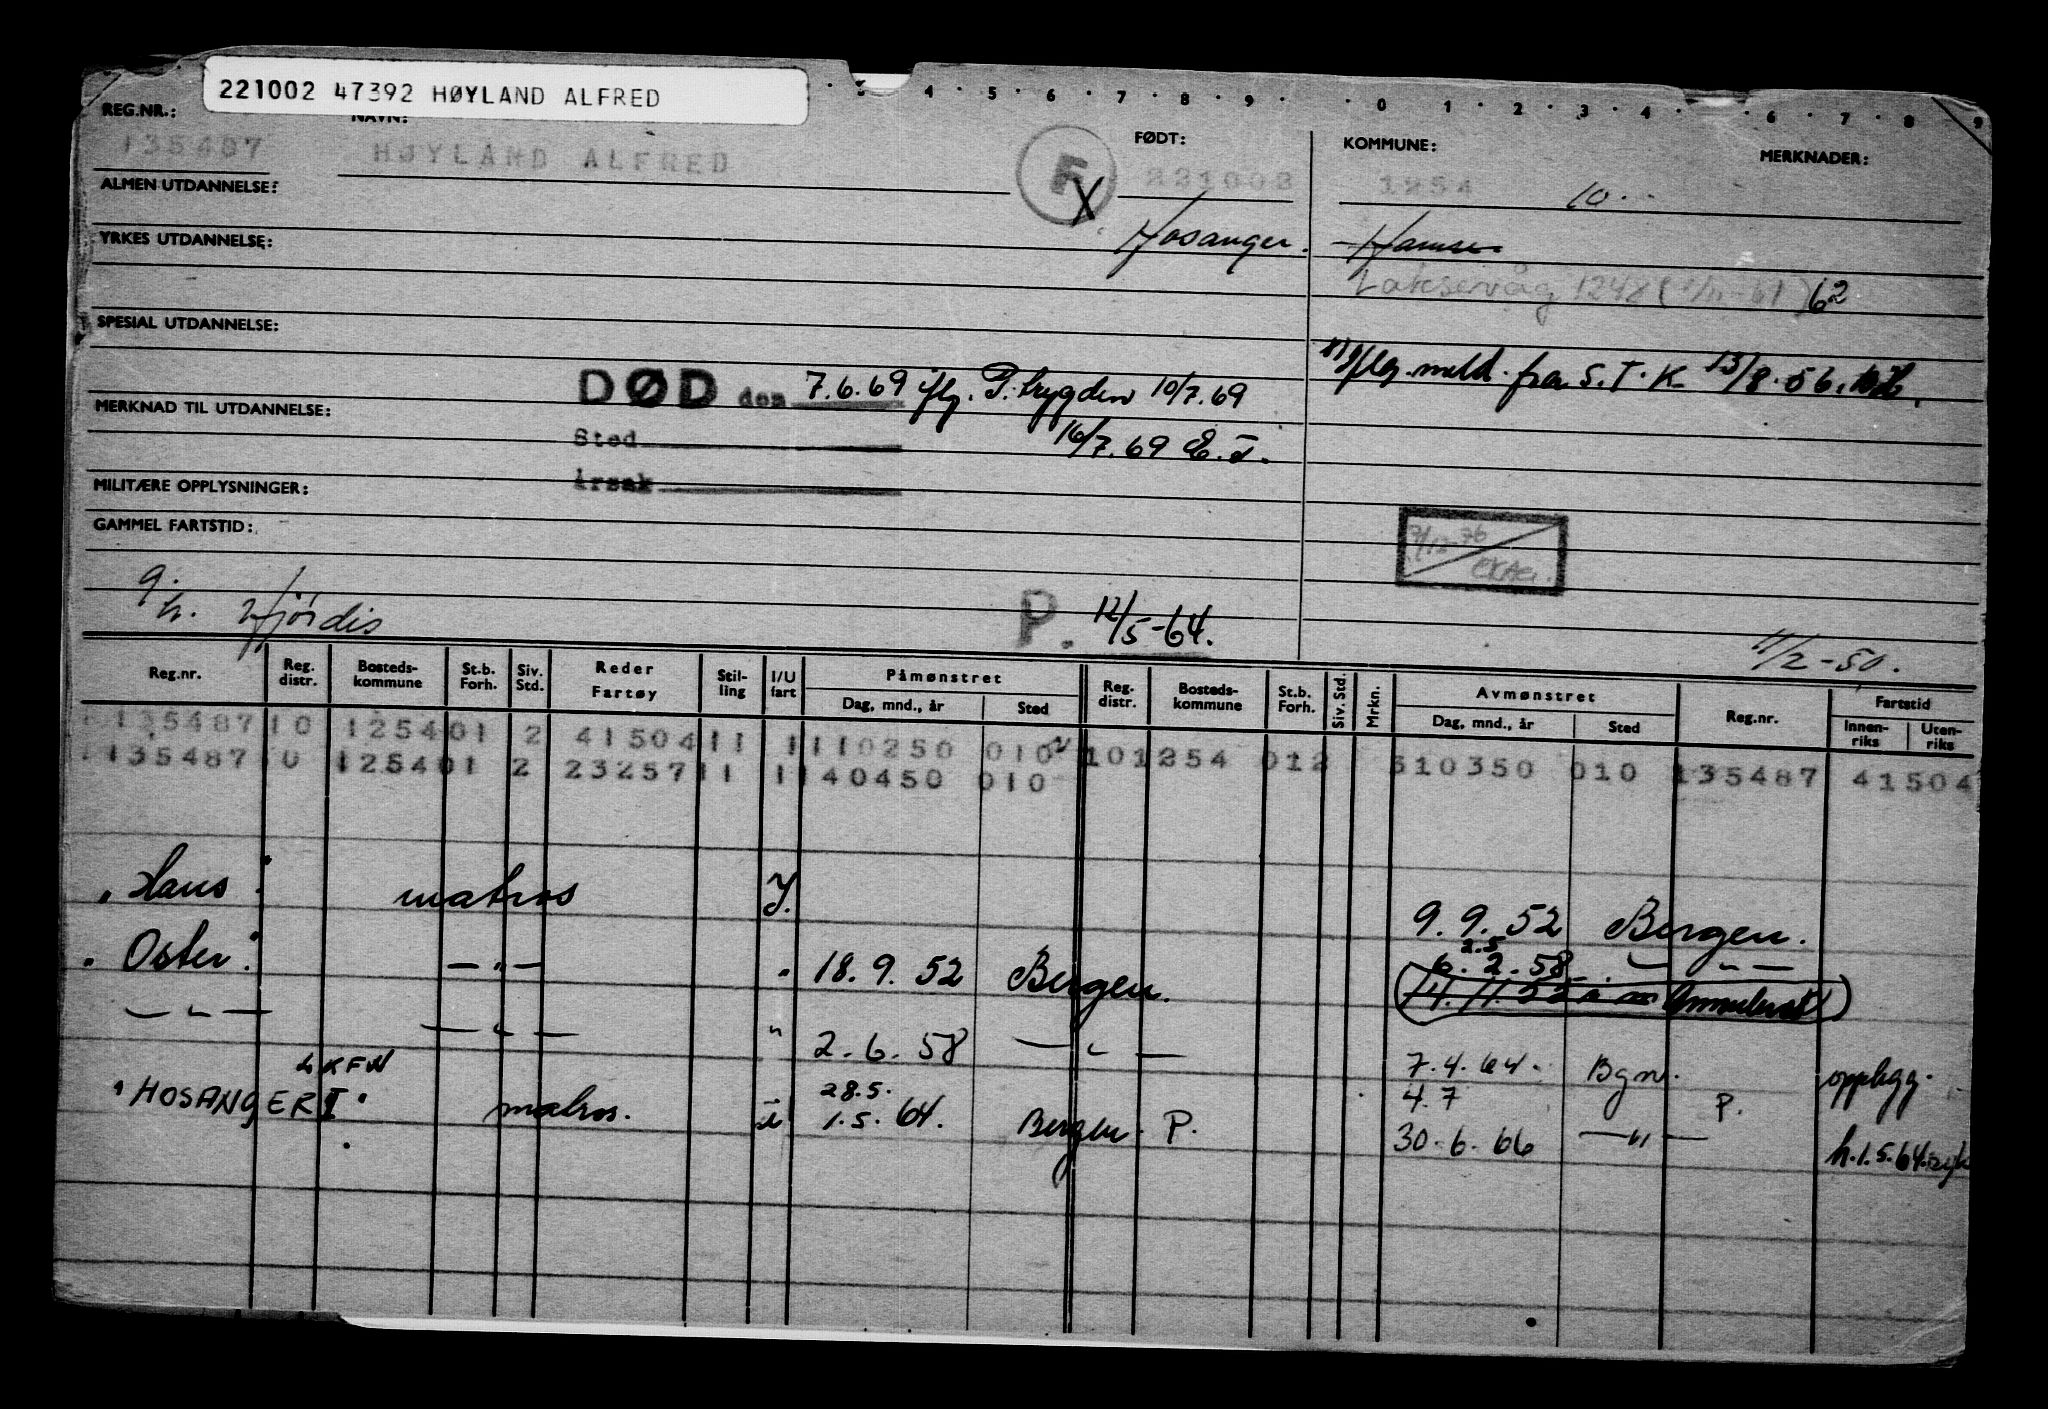 221002 47392 HØYLAND ALFRED
3 · 4 · 5 · 6 · 7 · 8 · 9 · · 0 · 1 · 2 · 3 · 4 · 6 · 7 · 8 · 9
REG.NR.: NAVN: FØDT: KOMMUNE: MERKNADER:
135487 HØYLAND ALFRED F 221002 1254 10
ALMEN UTDANNELSE: X
Hosanger.
YRKES UTDANNELSE:
Laksevåg 1248 ( -61) 62
SPESIAL UTDANNELSE:
meld. fra S.T.K 13/8-56.
DØD den 7.6.69 iflg. P.trygden 10/7.69
MERKNAD TIL UTDANNELSE:
Sted 16/7.69
Årsak
MILITÆRE OPPLYSNINGER:
GAMMEL FARTSTID:
7/12-76
g. h. Hjørdis
P. 12/5-64.
11/2-50.
Reg.nr. Reg. distr. Bosteds-kommune St.b. Forh. Siv. Std. Reder Fartøy Stil-ling I/U fart Påmønstret Dag, mnd., år Sted Reg. distr. Bosteds-kommune St.b. Forh. Siv. Std. Mrkn. Avmønstret Dag, mnd., år Sted Reg.nr. Fartstid Innen-riks Uten-riks
135487 10 1254 01 2 41504 11 1 110250 010 10 1254 012 310350 010 135487 41504
135487 10 1254 01 2 23257 11 1 140450 010
"Haus" matros I. 9.9.52 Bergen.
"Oster" — " — " 18.9.52 Bergen. 2.5 6.2.58 — " —
(14.11.52 Annulert)
— " — — " — " 2.6.58 — " — 7.4.64. Bgn. opplegg.
LKFN 28.5. 4.7
"HOSANGER I" matros. 1.5.64. Bergen. P. 30.6.66 — " — P. h.1.5.64.